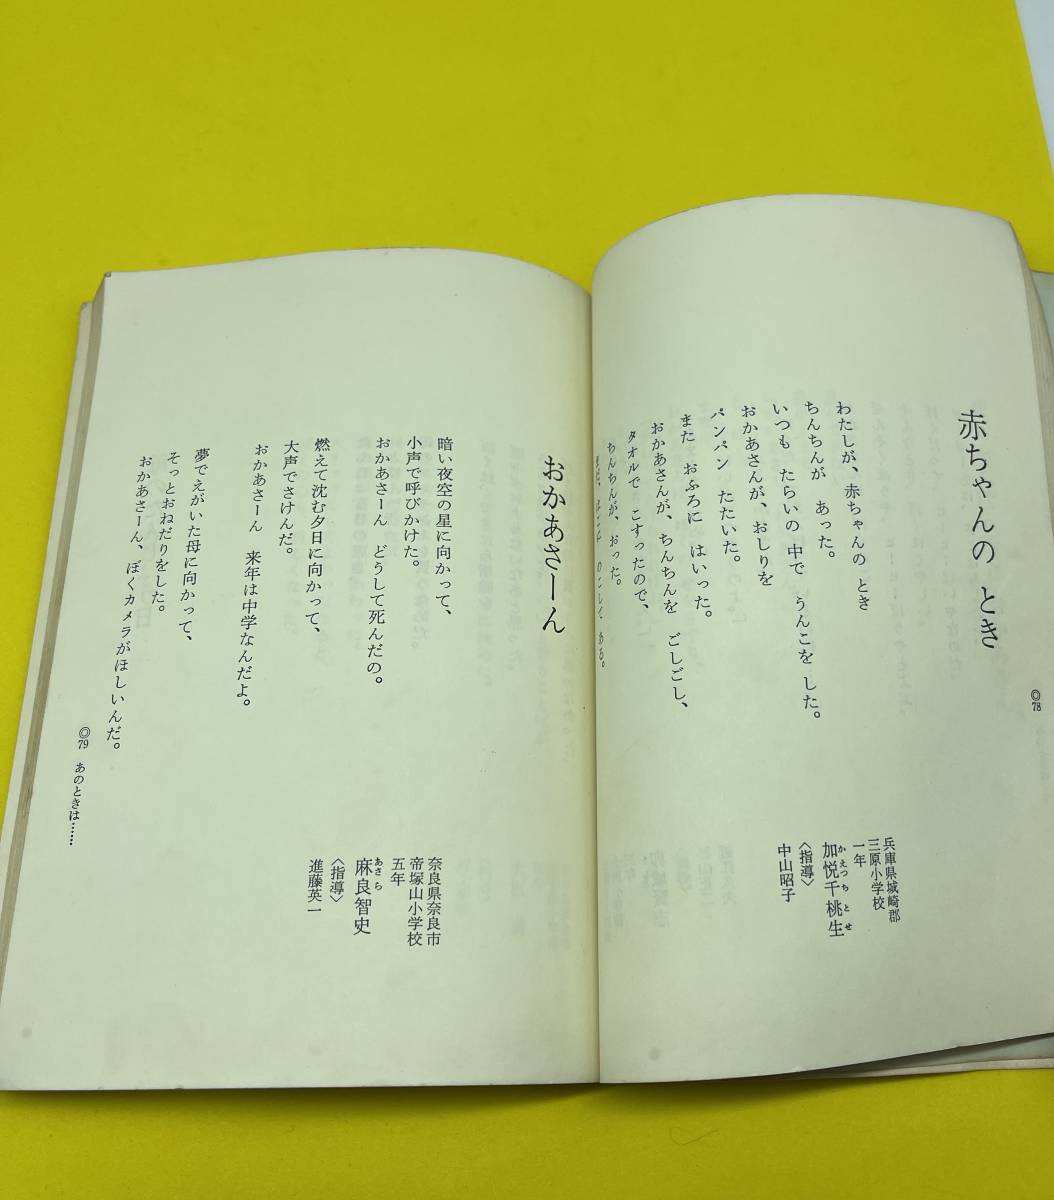 赤ちゃんの とき
わたしが、赤ちゃんの とき
ちんちんが あった。
いつも たらいの 中で うんこを した。
おかあさんが、おしりを
パンパン たたいた。
また おふろに はいった。
おかあさんが、ちんちんを ごしごし、
タオルで こすったので、
ちんちんが、おった。
のこしてある。
兵庫県城崎郡
三原小学校
一年
加悦千桃生
かえつちとせ
〈指導〉
中山昭子
◎78
おかあさーん
暗い夜空の星に向かって、
小声で呼びかけた。
おかあさーん どうして死んだの。
燃えて沈む夕日に向かって、
大声でさけんだ。
おかあさーん 来年は中学なんだよ。
夢でえがいた母に向かって、
そっとおねだりをした。
おかあさーん、ぼくカメラがほしいんだ。
奈良県奈良市
帝塚山小学校
五年
麻良智史
あさら
〈指導〉
進藤英一
◎79 あのときは……